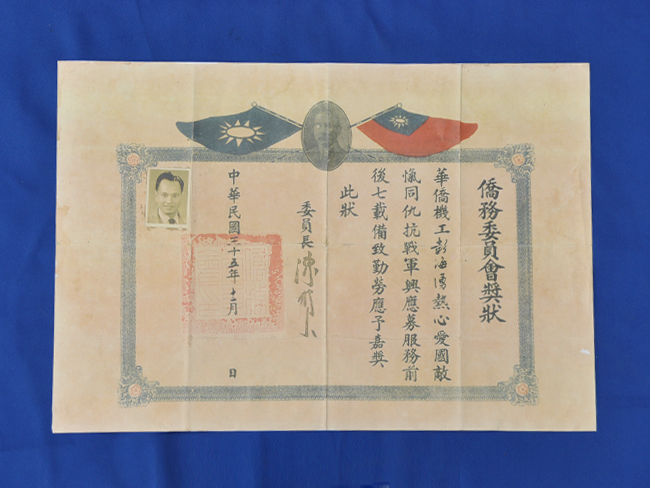 僑務委員會獎狀
華僑機工彭海濤熱心愛國敵
愾同仇抗戰軍興應募服務前
後七載備致勤勞應予嘉獎
此狀
委員長
中華民國三十五年十二月 日